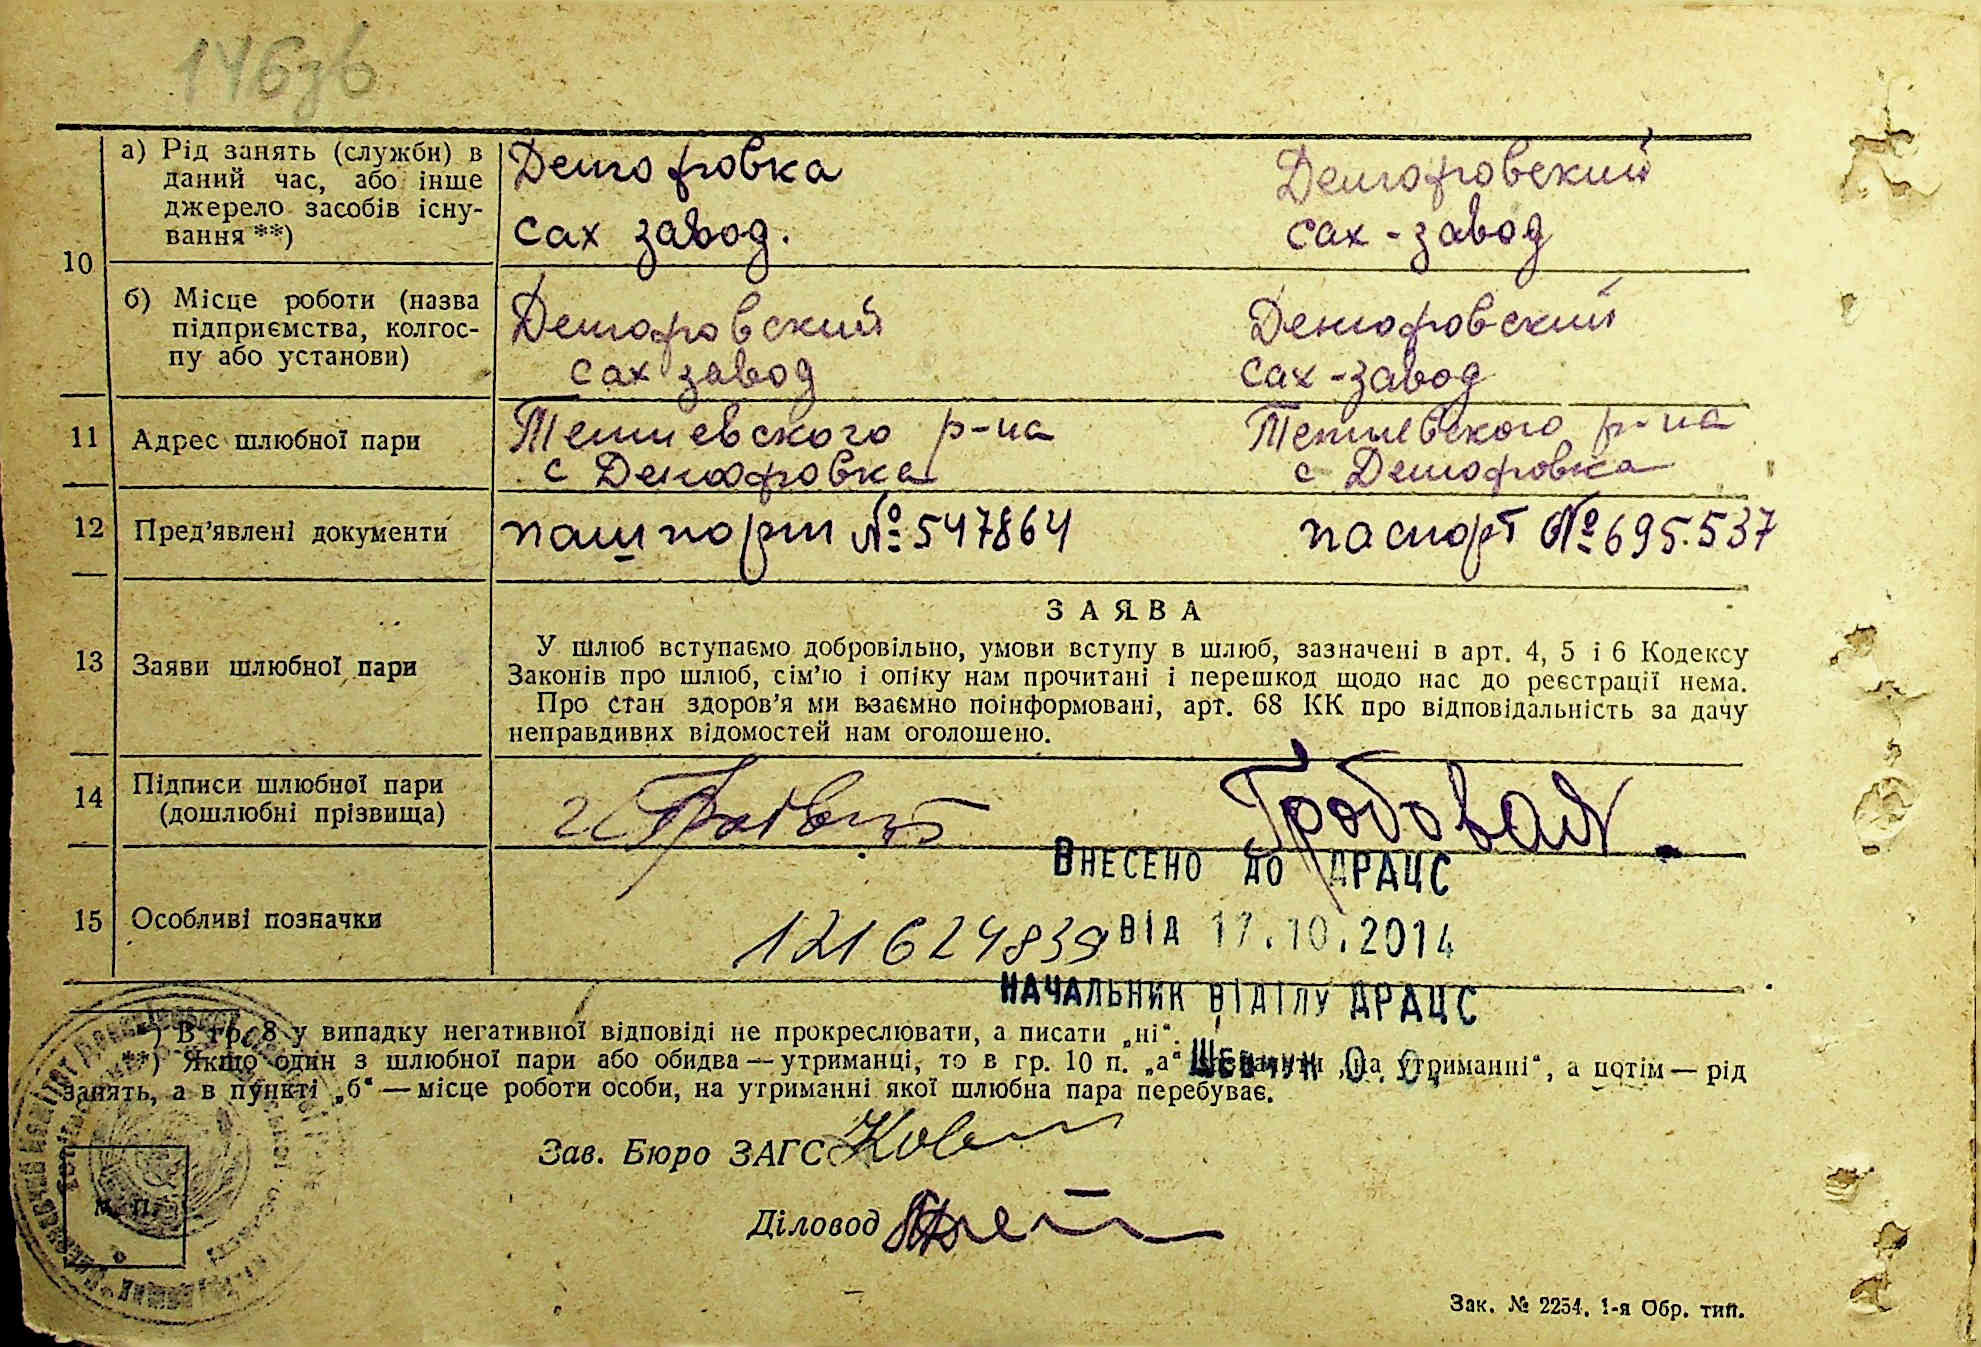 146зв
10
а) Рід занять (служби) в
даний час, або інше
джерело засобів існу-
вання **)
Денгофровка
сах завод.
Денгофровский
сах-завод
б) Місце роботи (назва
підприємства, колгос-
пу або установи)
Денгофровский
сах завод
Денгофровский
сах-завод
11
Адрес шлюбної пари
Тетиевского р-на
с Денгофровка
Тетиевского р-на
с Денгофровка
12
Пред'явлені документи
пашпорт №547864
паспорт №695.537
13
Заяви шлюбної пари
ЗАЯВА
У шлюб вступаємо добровільно, умови вступу в шлюб, зазначені в арт. 4, 5 і 6 Кодексу
Законів про шлюб, сім'ю і опіку нам прочитані і перешкод щодо нас до реєстрації нема.
Про стан здоров'я ми взаємно поінформовані, арт. 68 КК про відповідальність за дачу
неправдивих відомостей нам оголошено.
14
Підписи шлюбної пари
(дошлюбні прізвища)
Гробовая.
15
Особливі позначки
Внесено до ДРАЦС
121624839
від 17.10.2014
Начальник відділу ДРАЦС
Шевчук О. О.
*) В гр. 8 у випадку негативної відповіді не прокреслювати, а писати „ні“.
**) Якщо один з шлюбної пари або обидва — утриманці, то в гр. 10 п. „а“ „на утриманні“, а потім — рід
занять, а в пункті „б“ — місце роботи особи, на утриманні якої шлюбна пара перебуває.
Зав. Бюро ЗАГС
М. П.
Діловод
Зак. № 2254. 1-я Обр. тип.